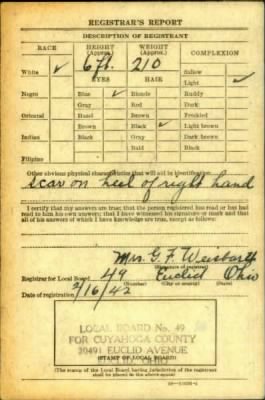 REGISTRAR'S REPORT
DESCRIPTION OF REGISTRANT
RACE HEIGHT (Approx.) WEIGHT (Approx.) COMPLEXION
6 ft. 210
White ✓ EYES HAIR Sallow
Light ✓
Negro Blue ✓ Blonde Ruddy
Gray Red Dark
Oriental Hazel Brown Freckled
Brown Black ✓ Light brown
Indian Black Gray Dark brown
Bald Black
Filipino
Other obvious physical characteristics that will aid in identification
Scar on heel of right hand
I certify that my answers are true; that the person registered has read or has had read to him his own answers; that I have witnessed his signature or mark and that all of his answers of which I have knowledge are true, except as follows:
Mrs. G. F. Weisbarth
(Signature of registrar)
Registrar for Local Board 49 Euclid Ohio
(Number) (City or county) (State)
Date of registration 2/16/42
LOCAL BOARD No. 49
FOR CUYAHOGA COUNTY
20491 EUCLID AVENUE
EUCLID, OHIO
(STAMP OF LOCAL BOARD)
(The stamp of the Local Board having jurisdiction of the registrant shall be placed in the above space.)